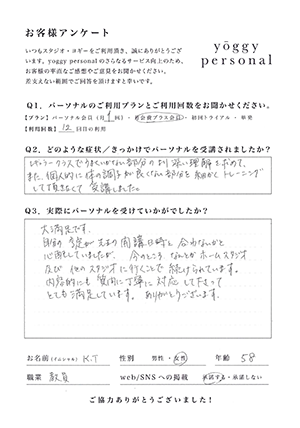 お客様アンケート
いつもスタジオ・ヨギーをご利用頂き、誠にありがとうござ
います。yoggy personalのさらなるサービス向上のため、
お客様の率直なご感想やご意見をお聞かせください。
差支えない範囲でご回答を頂けますと幸いです。
yoggy
personal
Q1. パーソナルのご利用プランとご利用回数をお聞かせください。
【プラン】パーソナル会員（月 回）・ 社会前プラス会員 ・ 初回トライアル ・ 単発
【利用回数】12 回目の利用
Q2. どのような症状／きっかけでパーソナルを受講されましたか？
レギュラークラスでうまくいかない部分のより深い理解を求めて、
また、個人的に体の調子が良くない部分を細かくトレーニング
して頂きたくて受講しました。
Q3. 実際にパーソナルを受けていかがでしたか？
大満足です。
自分の予定が先生の開講日時と合わないかと
心配していましたが、今のところ なんとかホームスタジオ
及び他のスタジオに行くことで続けられています。
内容的にも質問に丁寧に対応して下さって
とても満足しています。ありがとうございます。
お名前（イニシャル） K.T 性別 男性 ・ 女性 年齢 58
職業 教員 web/SNSへの掲載 承諾する ・ 承諾しない
ご協力ありがとうございました！